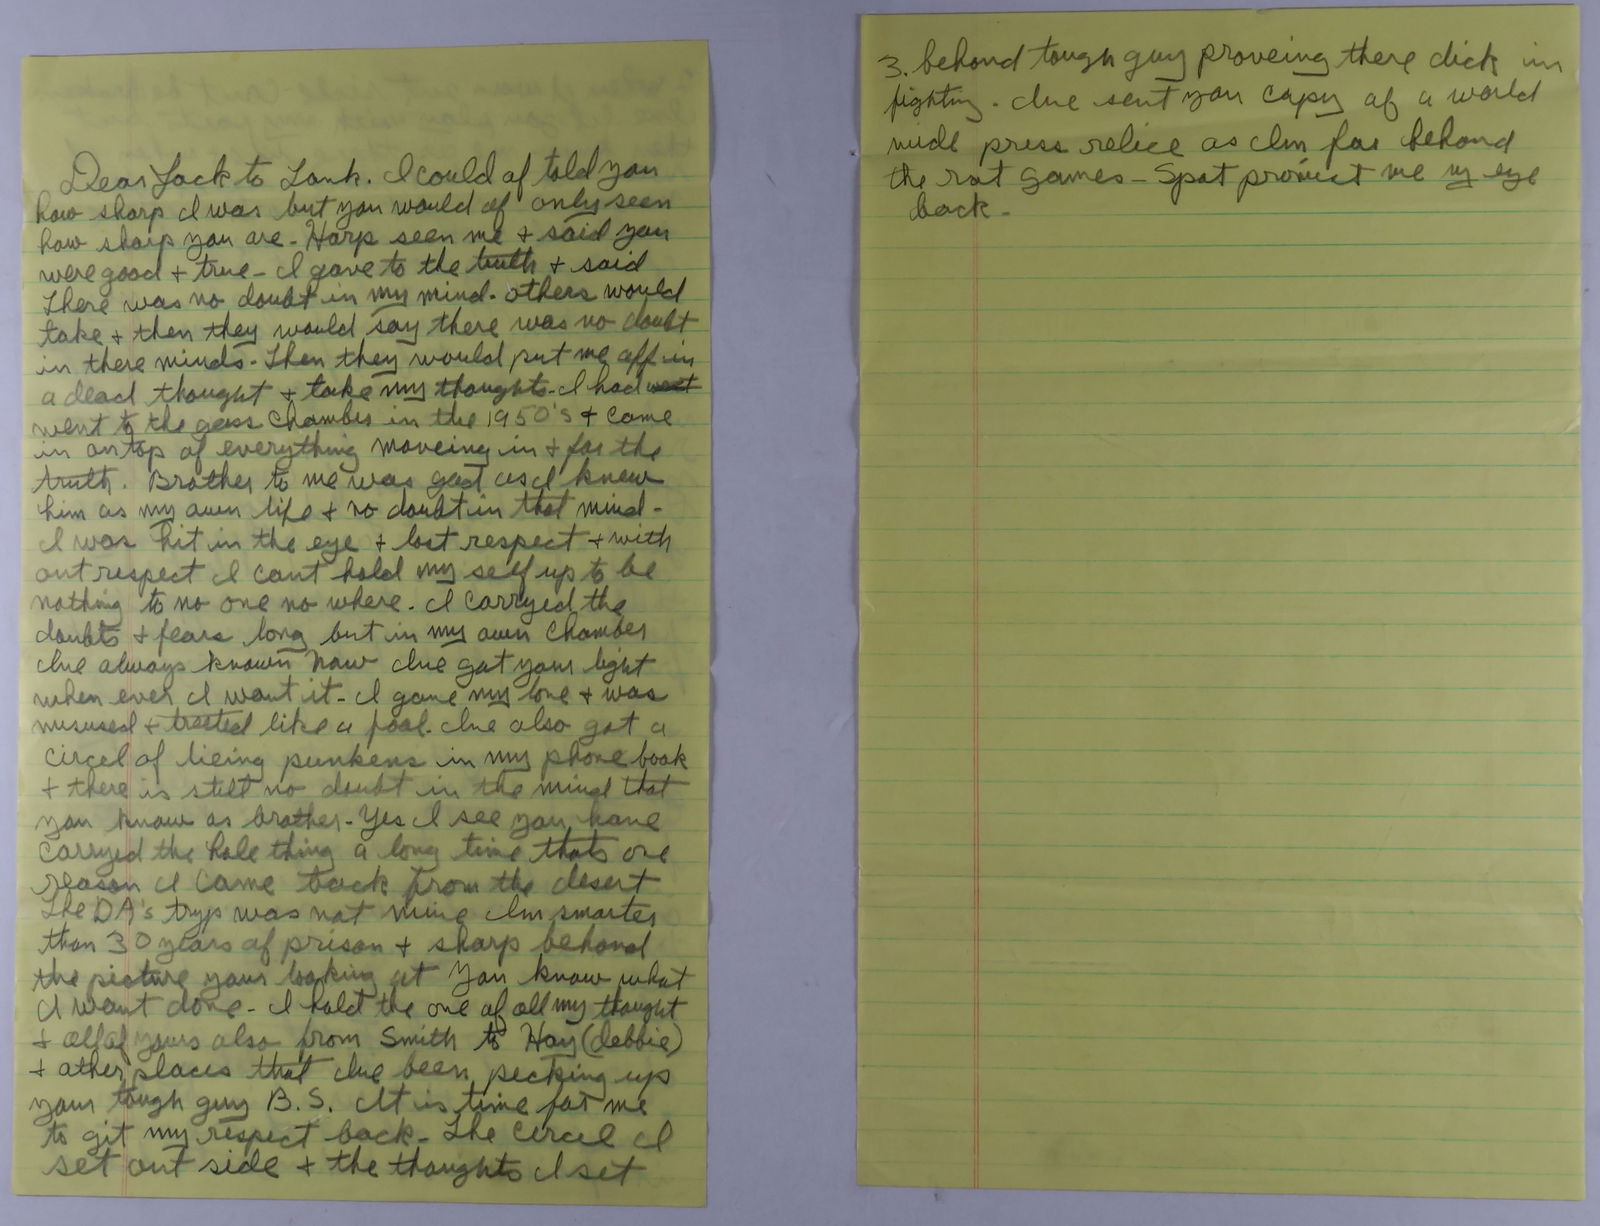 Dear Jack to Lank. I could of told you
how sharp I was but you would of only seen
how sharp you are - Harp seen me + said you
were good + true - I gave to the truth + said
There was no doubt in my mind - others would
take + then they would say there was no doubt
in there minds - Then they would put me off in
a dead thought + take my thoughts - I had went
went to the gass chamber in the 1950's + came
in on top of everything moveing in + for the
truth. Brother to me was as I knew
him as my own life + no doubt in that mind -
I was hit in the eye + lost respect + with
out respect I cant hold my self up to be
nothing to no one no where. I carryed the
doubts + fears long but in my own chamber
Ive always known how Ive got your light
when ever I want it - I gave my love + was
misused + treated like a fool. Ive also got a
circel of lieing punkens in my phone book
+ there is still no doubt in the mind that
you know as brother - Yes I see you have
carryed the hole thing a long time thats one
reason I came back from the desert
The DA's tryp was not mine Im smarter
than 30 years of prison + sharp behond
the picture your looking at you know what
I want done - I hold the one of all my thought
+ all of yours also from Smith to Hay (debbie)
+ other places that Ive been pecking up
your tough guy B.S. It is time for me
to git my respect back - The circel I
set out side + the thoughts I set
3. behond tough guy proveing there dick in
fighting. Ive sent you capy of a world
wide press relice as Im far behond
the rat games - Spat me my eye
back -